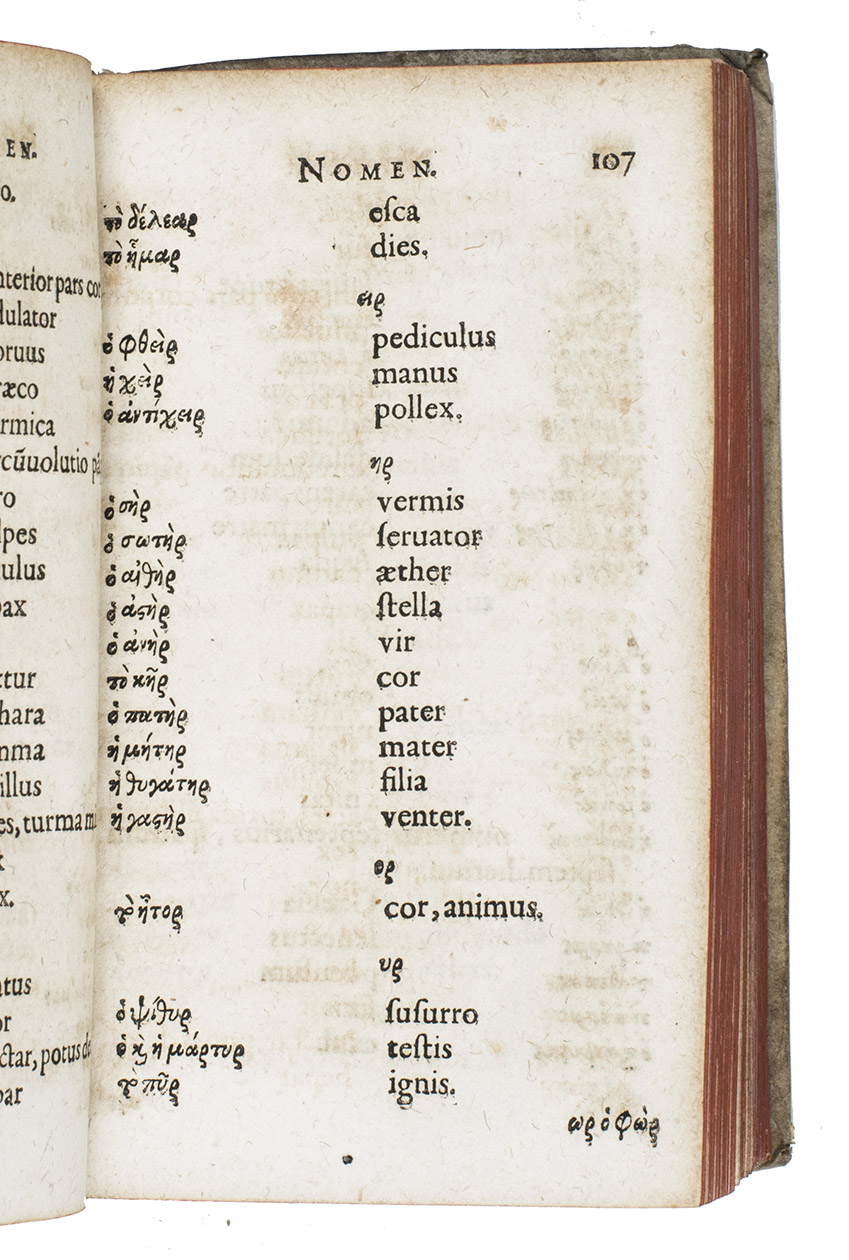 EN.
NOMEN. 107
τὸ δέλεαρ eſca
τὸ ἦμαρ dies.
ειρ
ὁ φθεὶρ pediculus
ἡ χεὶρ manus
ὁ ἀντίχειρ pollex.
ηρ
ὁ σὴρ vermis
ὁ σωτὴρ ſeruator
ὁ αἰθὴρ æther
ὁ ἀϛὴρ ſtella
ὁ ἀνὴρ vir
τὸ κῆρ cor
ὁ πατὴρ pater
ἡ μήτηρ mater
ἡ θυγάτηρ filia
ἡ γαϛὴρ venter.
ορ
τὸ ἦτορ cor, animus.
υρ
ὁ ψίθυρ ſuſurro
ὁ κ̀ ἡ μάρτυρ teſtis
τὸ πῦρ ignis.
ωρ ὁ φὼρ
o.
nterior pars cor
dulator
oruus
ræco
rmica
rcũuolutio
ro
lpes
ulus
pax
ctur
hara
mma
illus
es, turma
x
x.
atus
or
ctar, potus de
par